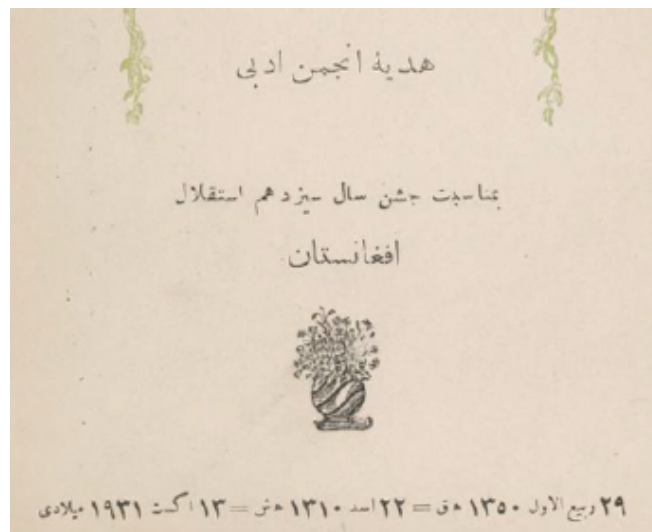 هدیهٔ انجمن ادبی
بمناسبت جشن سال سیزدهم استقلال
افغانستان
۲۹ ربیع الاول ۱۳۵۰ هق = ۲۲ اسد ۱۳۱۰ هش = ۱۳ اگست ۱۹۳۱ میلادی